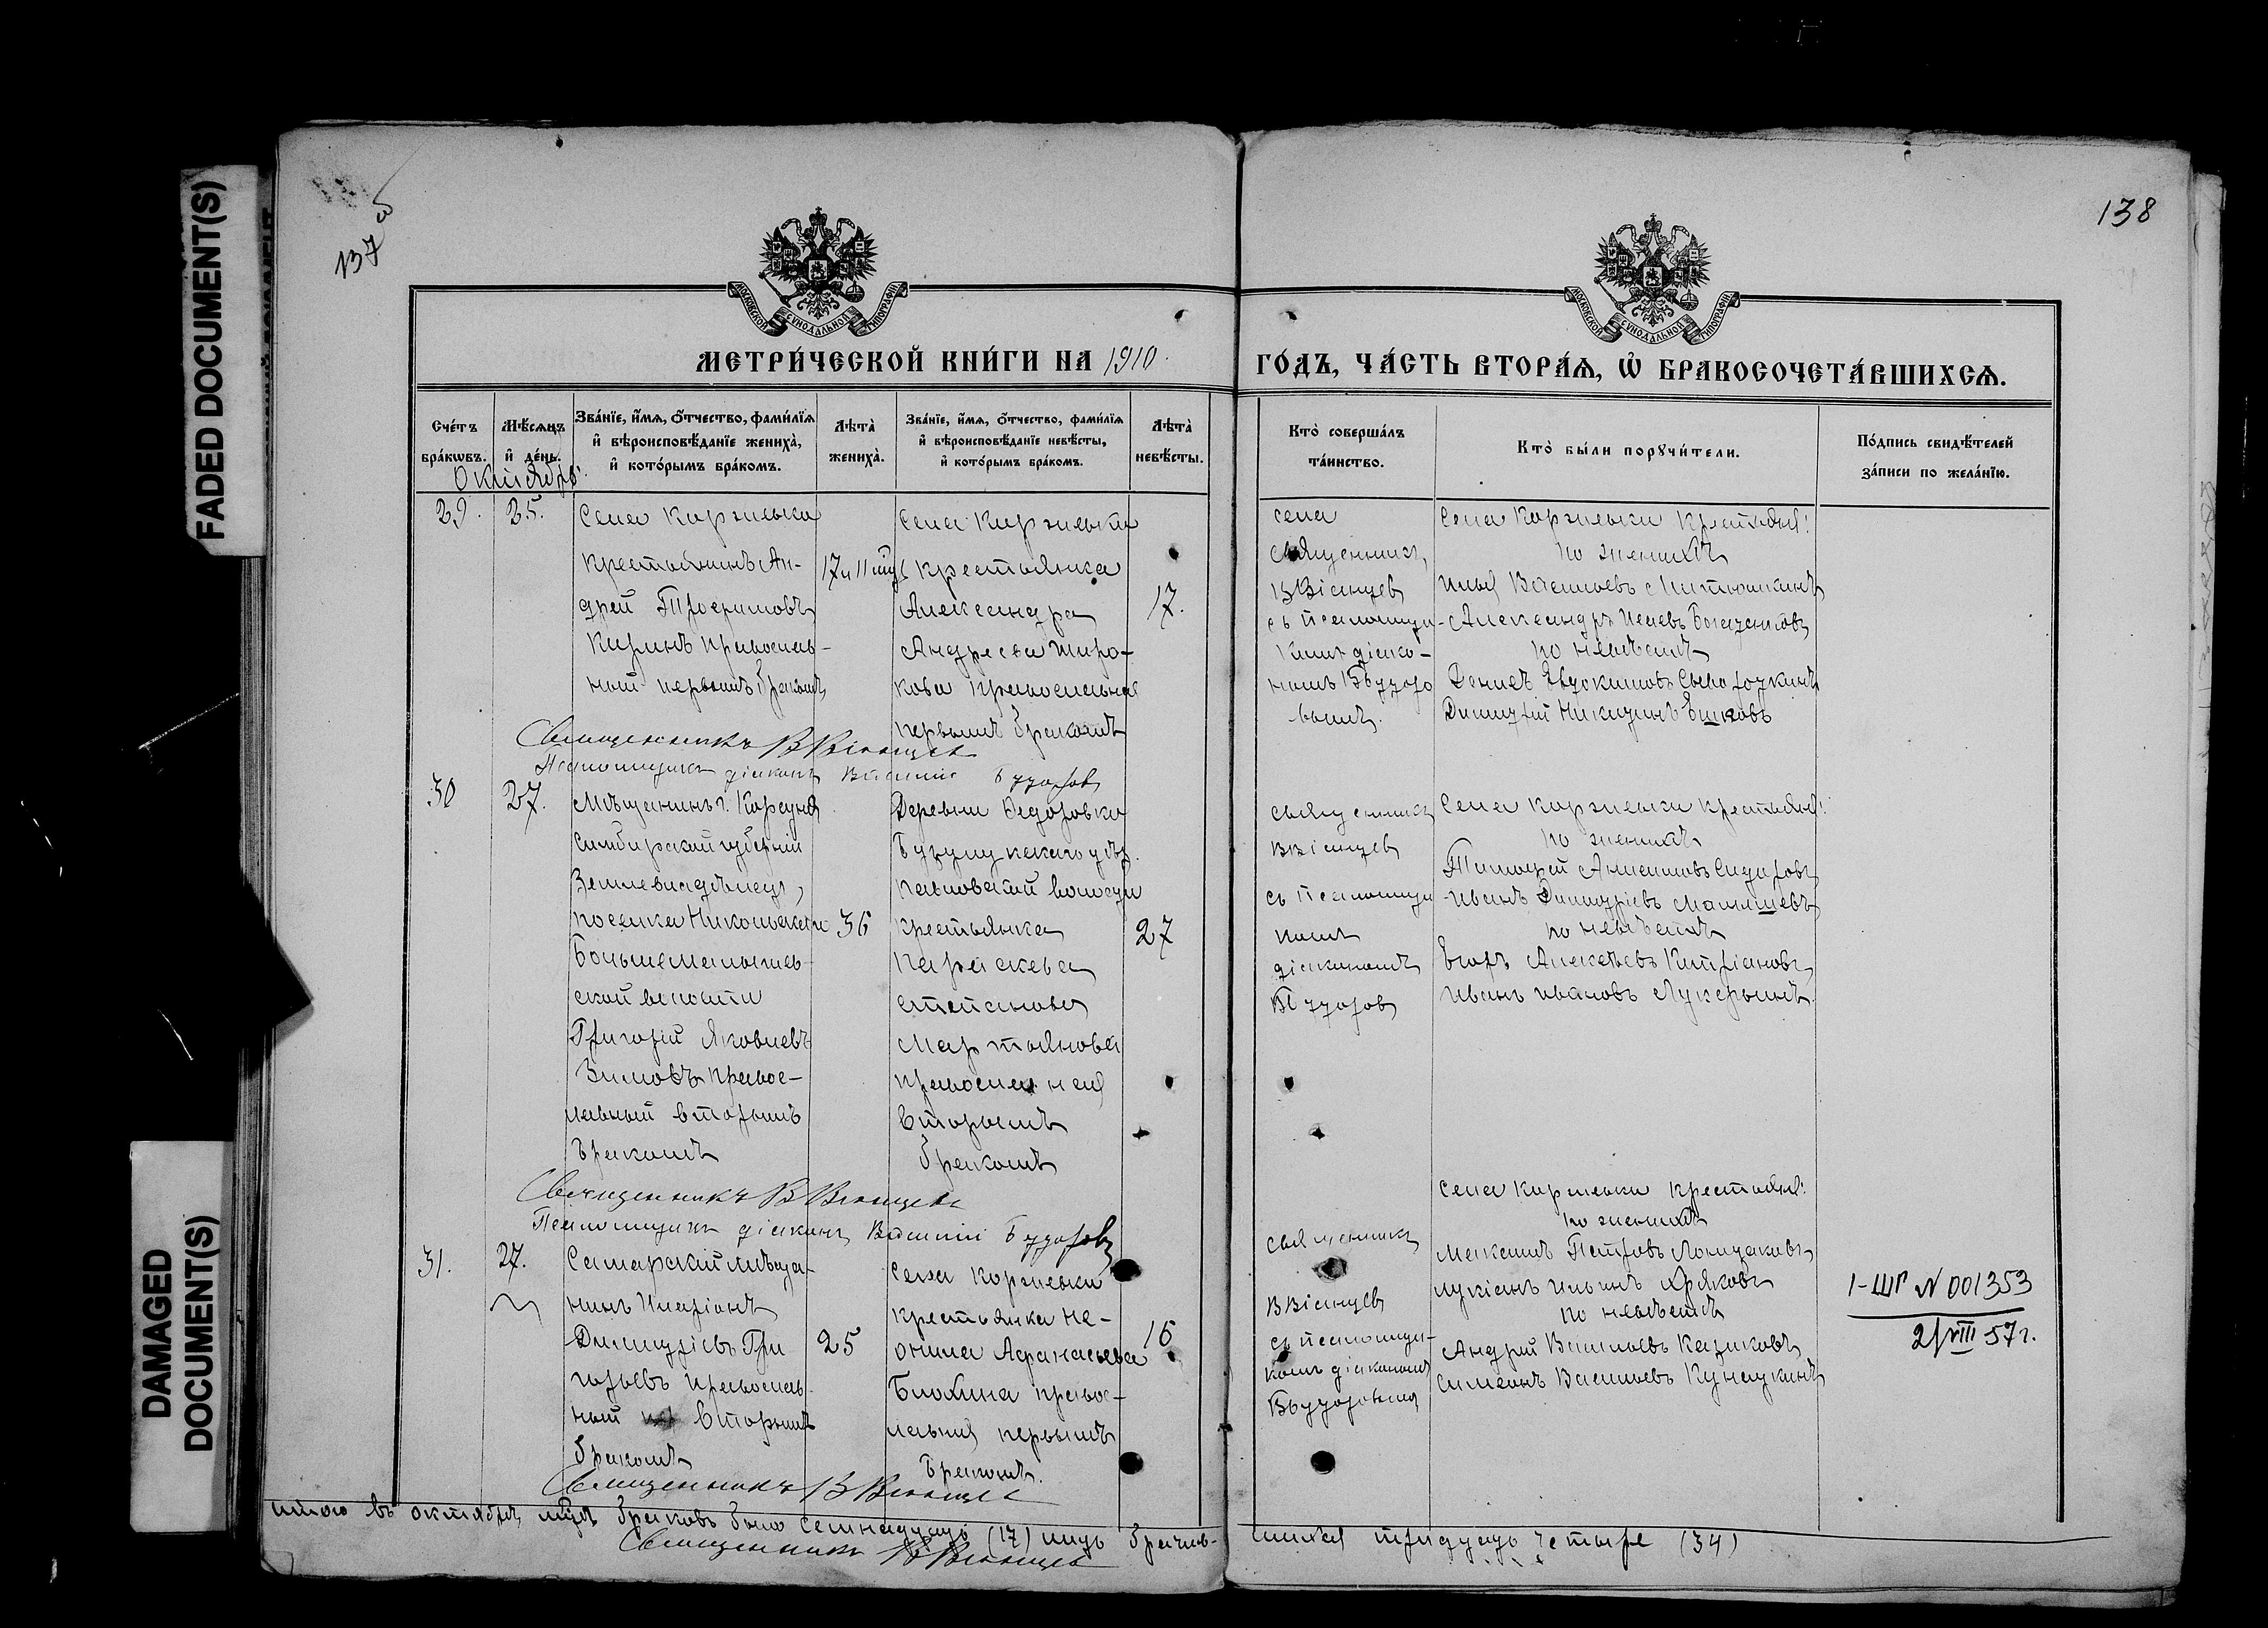 FADED DOCUMENT(S)
DAMAGED
DOCUMENT(S)
137 об
138
МОСКОВСКОЙ СУНОДАЛЬНОЙ ТИПОГРАФІИ
МОСКОВСКОЙ СУНОДАЛЬНОЙ ТИПОГРАФІИ
МЕТРИ́ЧЕСКОЙ КНИ́ГИ НА 1910 ГО́ДЪ, ЧА́СТЬ ВТОРА́Ѧ, Ѽ БРАКОСОЧЕТА́ВШИХСѦ.
Сче́тъ
бра́кѡвъ.
Мѣ́сяцъ
и҆ де́нь.
Зва́нїе, и҆́мѧ, ѻ҆́тчество, фами́лїѧ
и҆ вѣроисповѣ́данїе жениха̀,
и҆ кото́рымъ бра́комъ.
Лѣта̀
жениха̀.
Зва́нїе, и҆́мѧ, ѻ҆́тчество, фами́лїѧ
и҆ вѣроисповѣ́данїе невѣ́сты,
и҆ кото́рымъ бра́комъ.
Лѣта̀
невѣ́сты.
Кто̀ соверша́лъ
та́инство.
Кто̀ бы́ли порꙋчи́тели.
По́дпись свидѣ́телей
за́писи по жела́нїю.
Октябрь
29.
25.
Села Коржевки
крестьянинъ Ан-
дрей Трофимовъ
Киринъ православ-
ный первымъ бракомъ
17 и 11 мѣс
Села Коржевки
крестьянка
Александра
Андреева Широ-
кова православная
первымъ бракомъ
17.
села
Священникъ
съ псаломщи-
комъ діако-
номъ
Села Коржевки крестьяне:
по женихѣ
Илья Васильевъ Митюшкинъ
Александръ Исаевъ
по невѣстѣ
Денисъ Евдокимовъ
Димитрій Никитинъ Ежковъ
Священникъ В
Псаломщикъ діаконъ Василій
30
27.
Мѣщанинъ г. Корсуня
Симбирской губерніи
Землевладѣлецъ,
поселка Никольскаго
Большемалышев-
ской волости
Григорій Яковлевъ
Зимовъ правос-
лавный вторымъ
бракомъ
36
Деревни Федоровки
Бузулукскаго уѣз.
Павловской волости
крестьянка
Параскева
Степанова
Мартьянова
православная
вторымъ
бракомъ
27
Священникъ
съ псаломщи
комъ
діакономъ
Села Коржевки крестьяне:
по женихѣ
Тимофей Анисимовъ Сидоровъ
Иванъ Димитріевъ Малышевъ
по невѣстѣ
Егоръ Алексѣевъ Кипріановъ
Иванъ Ивановъ Лукерьинъ
Священникъ В
Псаломщикъ діаконъ Василій
31.
27.
Самарскій мѣща-
нинъ Иларіонъ
Димитріевъ Гри
горьевъ православ-
ный вторымъ
бракомъ
25
Села Коржевки
крестьянка Не-
онила Афанасьева
Блохина правос-
лавная первымъ
бракомъ.
16
Священникъ
съ псаломщи-
комъ діакономъ
Села Коржевки крестьяне:
по женихѣ
Максимъ Петровъ
Лукіанъ Ильинъ
по невѣстѣ
Андрей Васильевъ Казаковъ
Симеонъ Васильевъ
1-ШГ N 001353
2/VIII 57г.
Священникъ В
Итого въ октябрѣ мѣс. браковъ было семнадцать (17) лицъ брачив-
шихся тридцать четыре (34)
Священникъ В